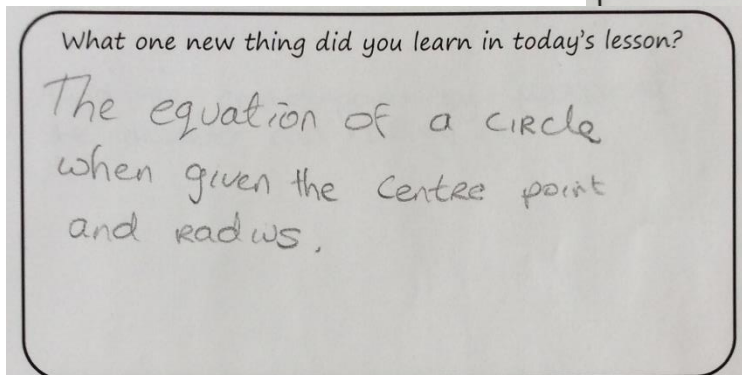 What one new thing did you learn in today's lesson?
The equation of a circle
when given the centre point
and radius.